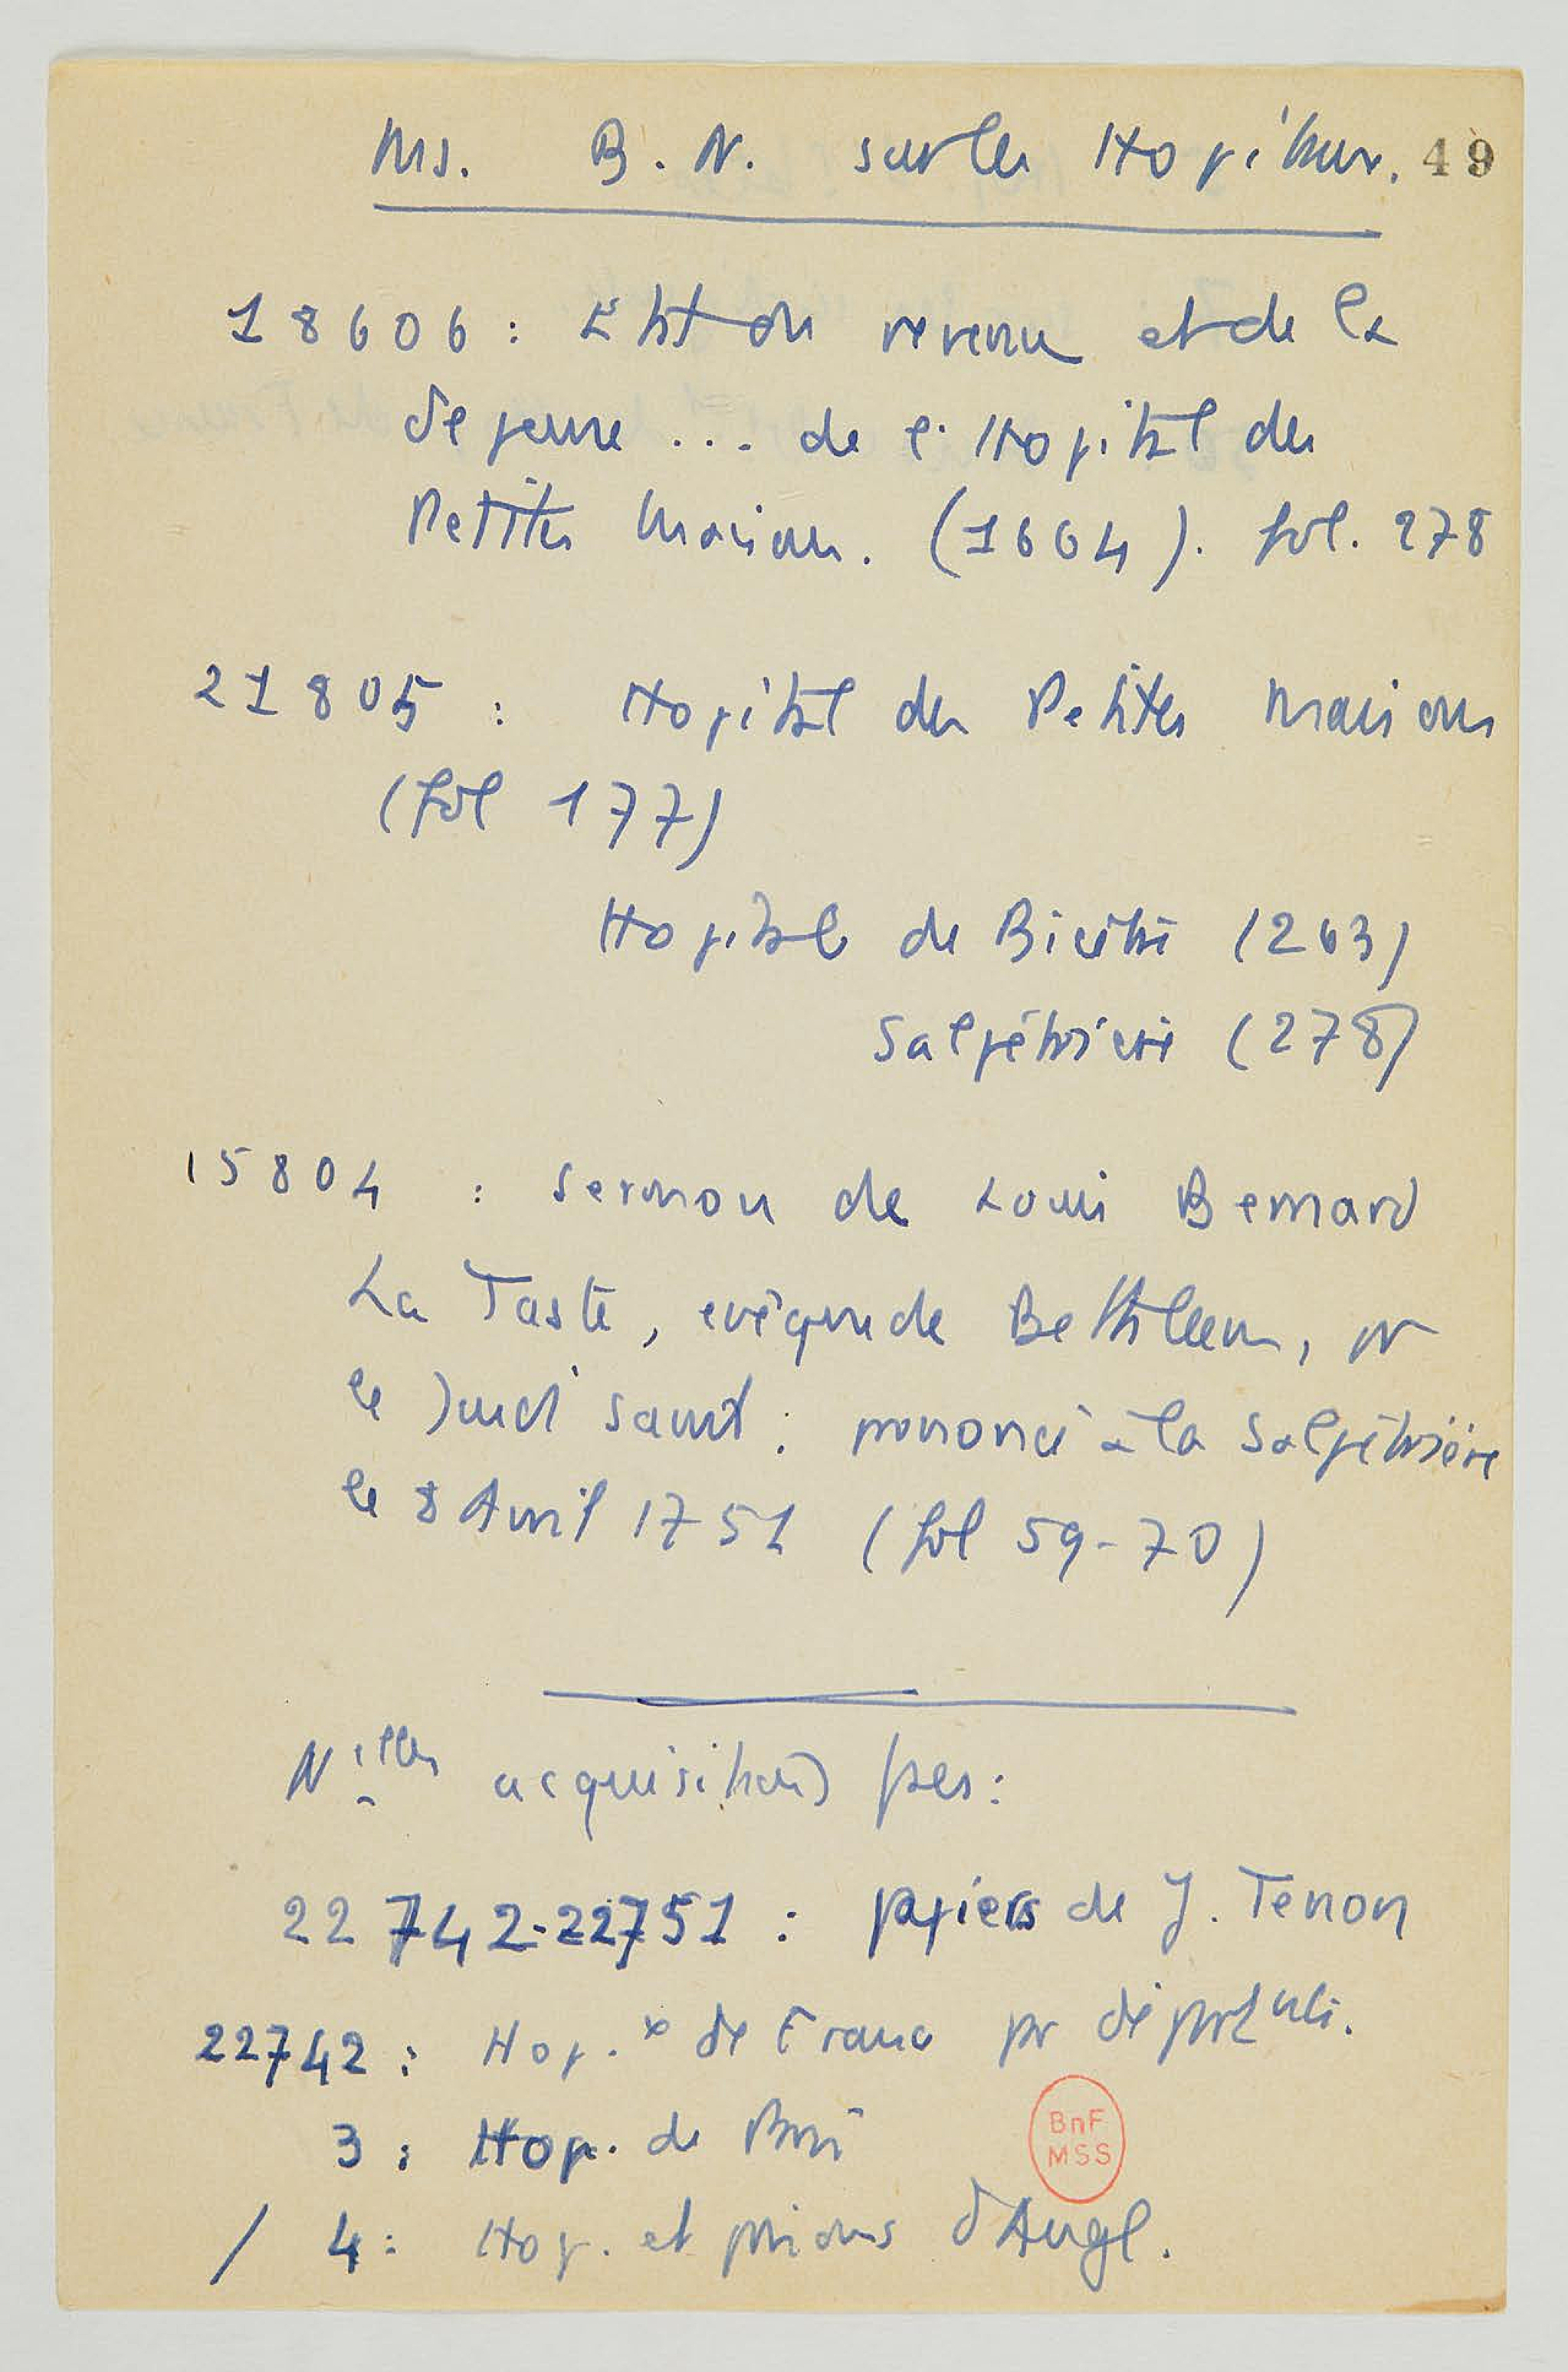 Ms. B. N. sur les Hopitaux. 49
18606 : Etat du revenu et de la
depense ... de l'Hopital des
Petites Maisons. (1664). fol. 278
21805 : Hopital des Petites Maisons
(fol 177)
Hopital de Bicêtre (263)
Salpêtrière (278)
15804 : Sermon de Louis Bernard
La Taste, evêque de Bethleem, pr
le Jeudi saint : prononcé à la Salpêtrière
le 8 Avril 1751 (fol 59-70)
Nlles acquisitions fses :
22 742-22751 : papiers de J. Tenon
22742 : Hop.x de France pr départ
3 : Hop. de Paris
/ 4 : Hop. et prisons d'Angl.
BnF
MSS